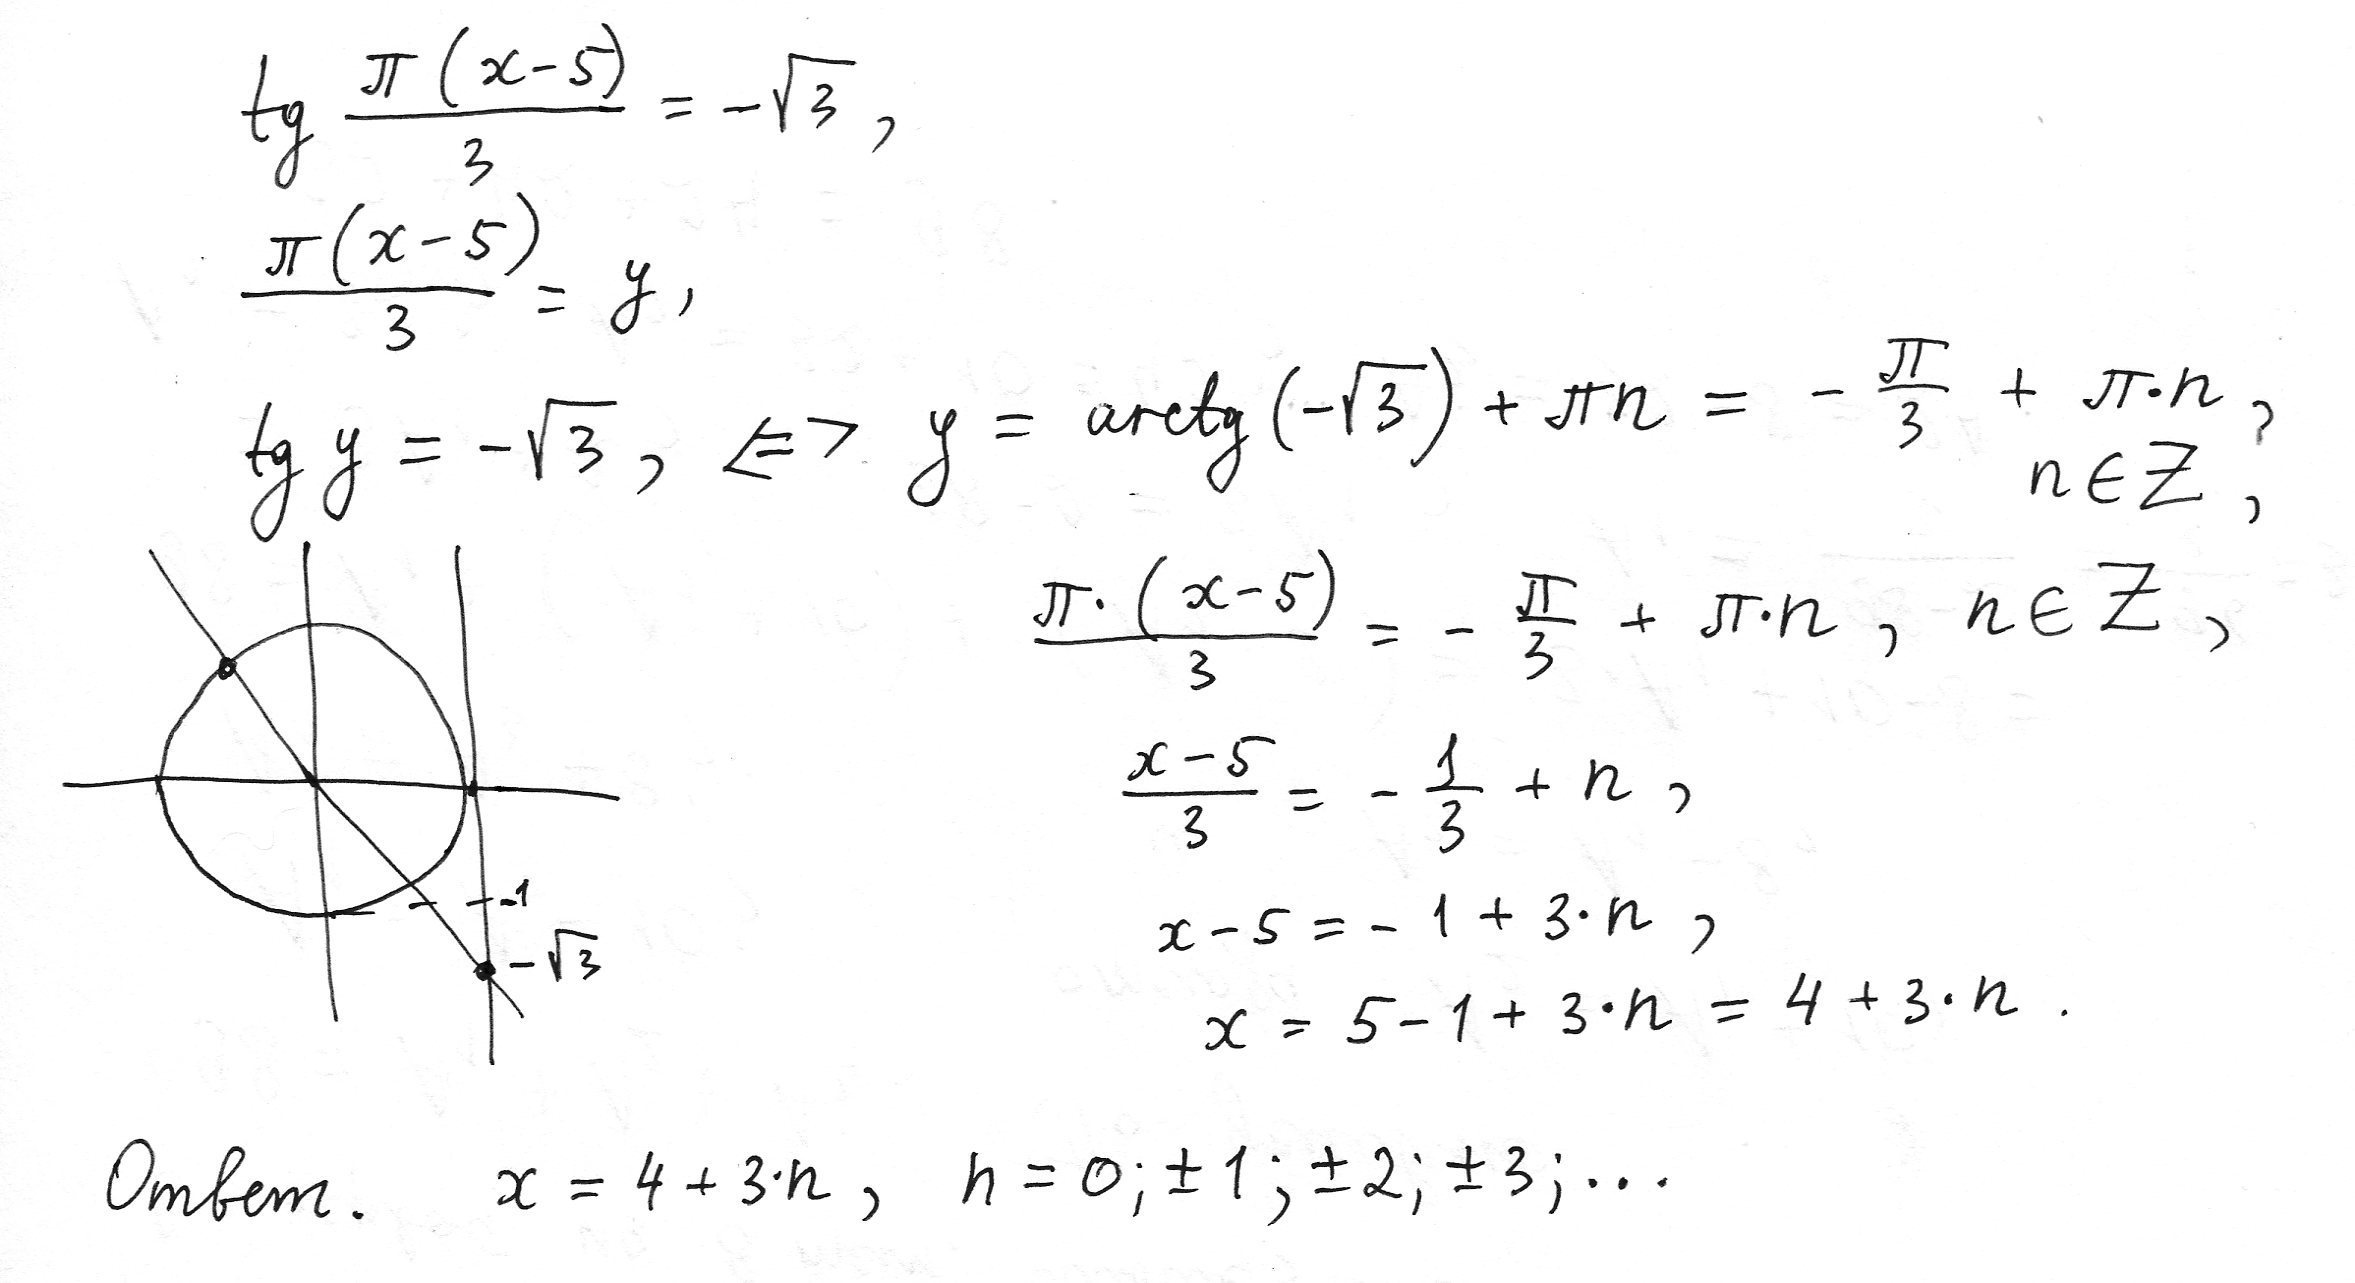 tg π(x-5)/3 = -√3,
π(x-5)/3 = y,
tg y = -√3, <=> y = arctg(-√3) + πn = -π/3 + π·n,
n∈Z,
π·(x-5)/3 = -π/3 + π·n, n∈Z,
(x-5)/3 = -1/3 + n,
-1
x-5 = -1 + 3·n,
-√3
x = 5-1 + 3·n = 4 + 3·n.
Ответ. x = 4 + 3·n, n = 0; ±1; ±2; ±3; ...